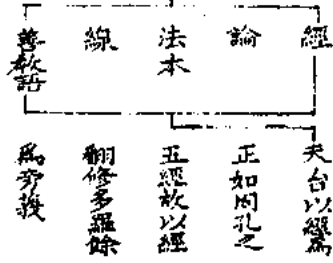 經
論
法本
線
善教語
天台以經為
正如周孔之
五經故以經
翻修多羅餘
為旁挾